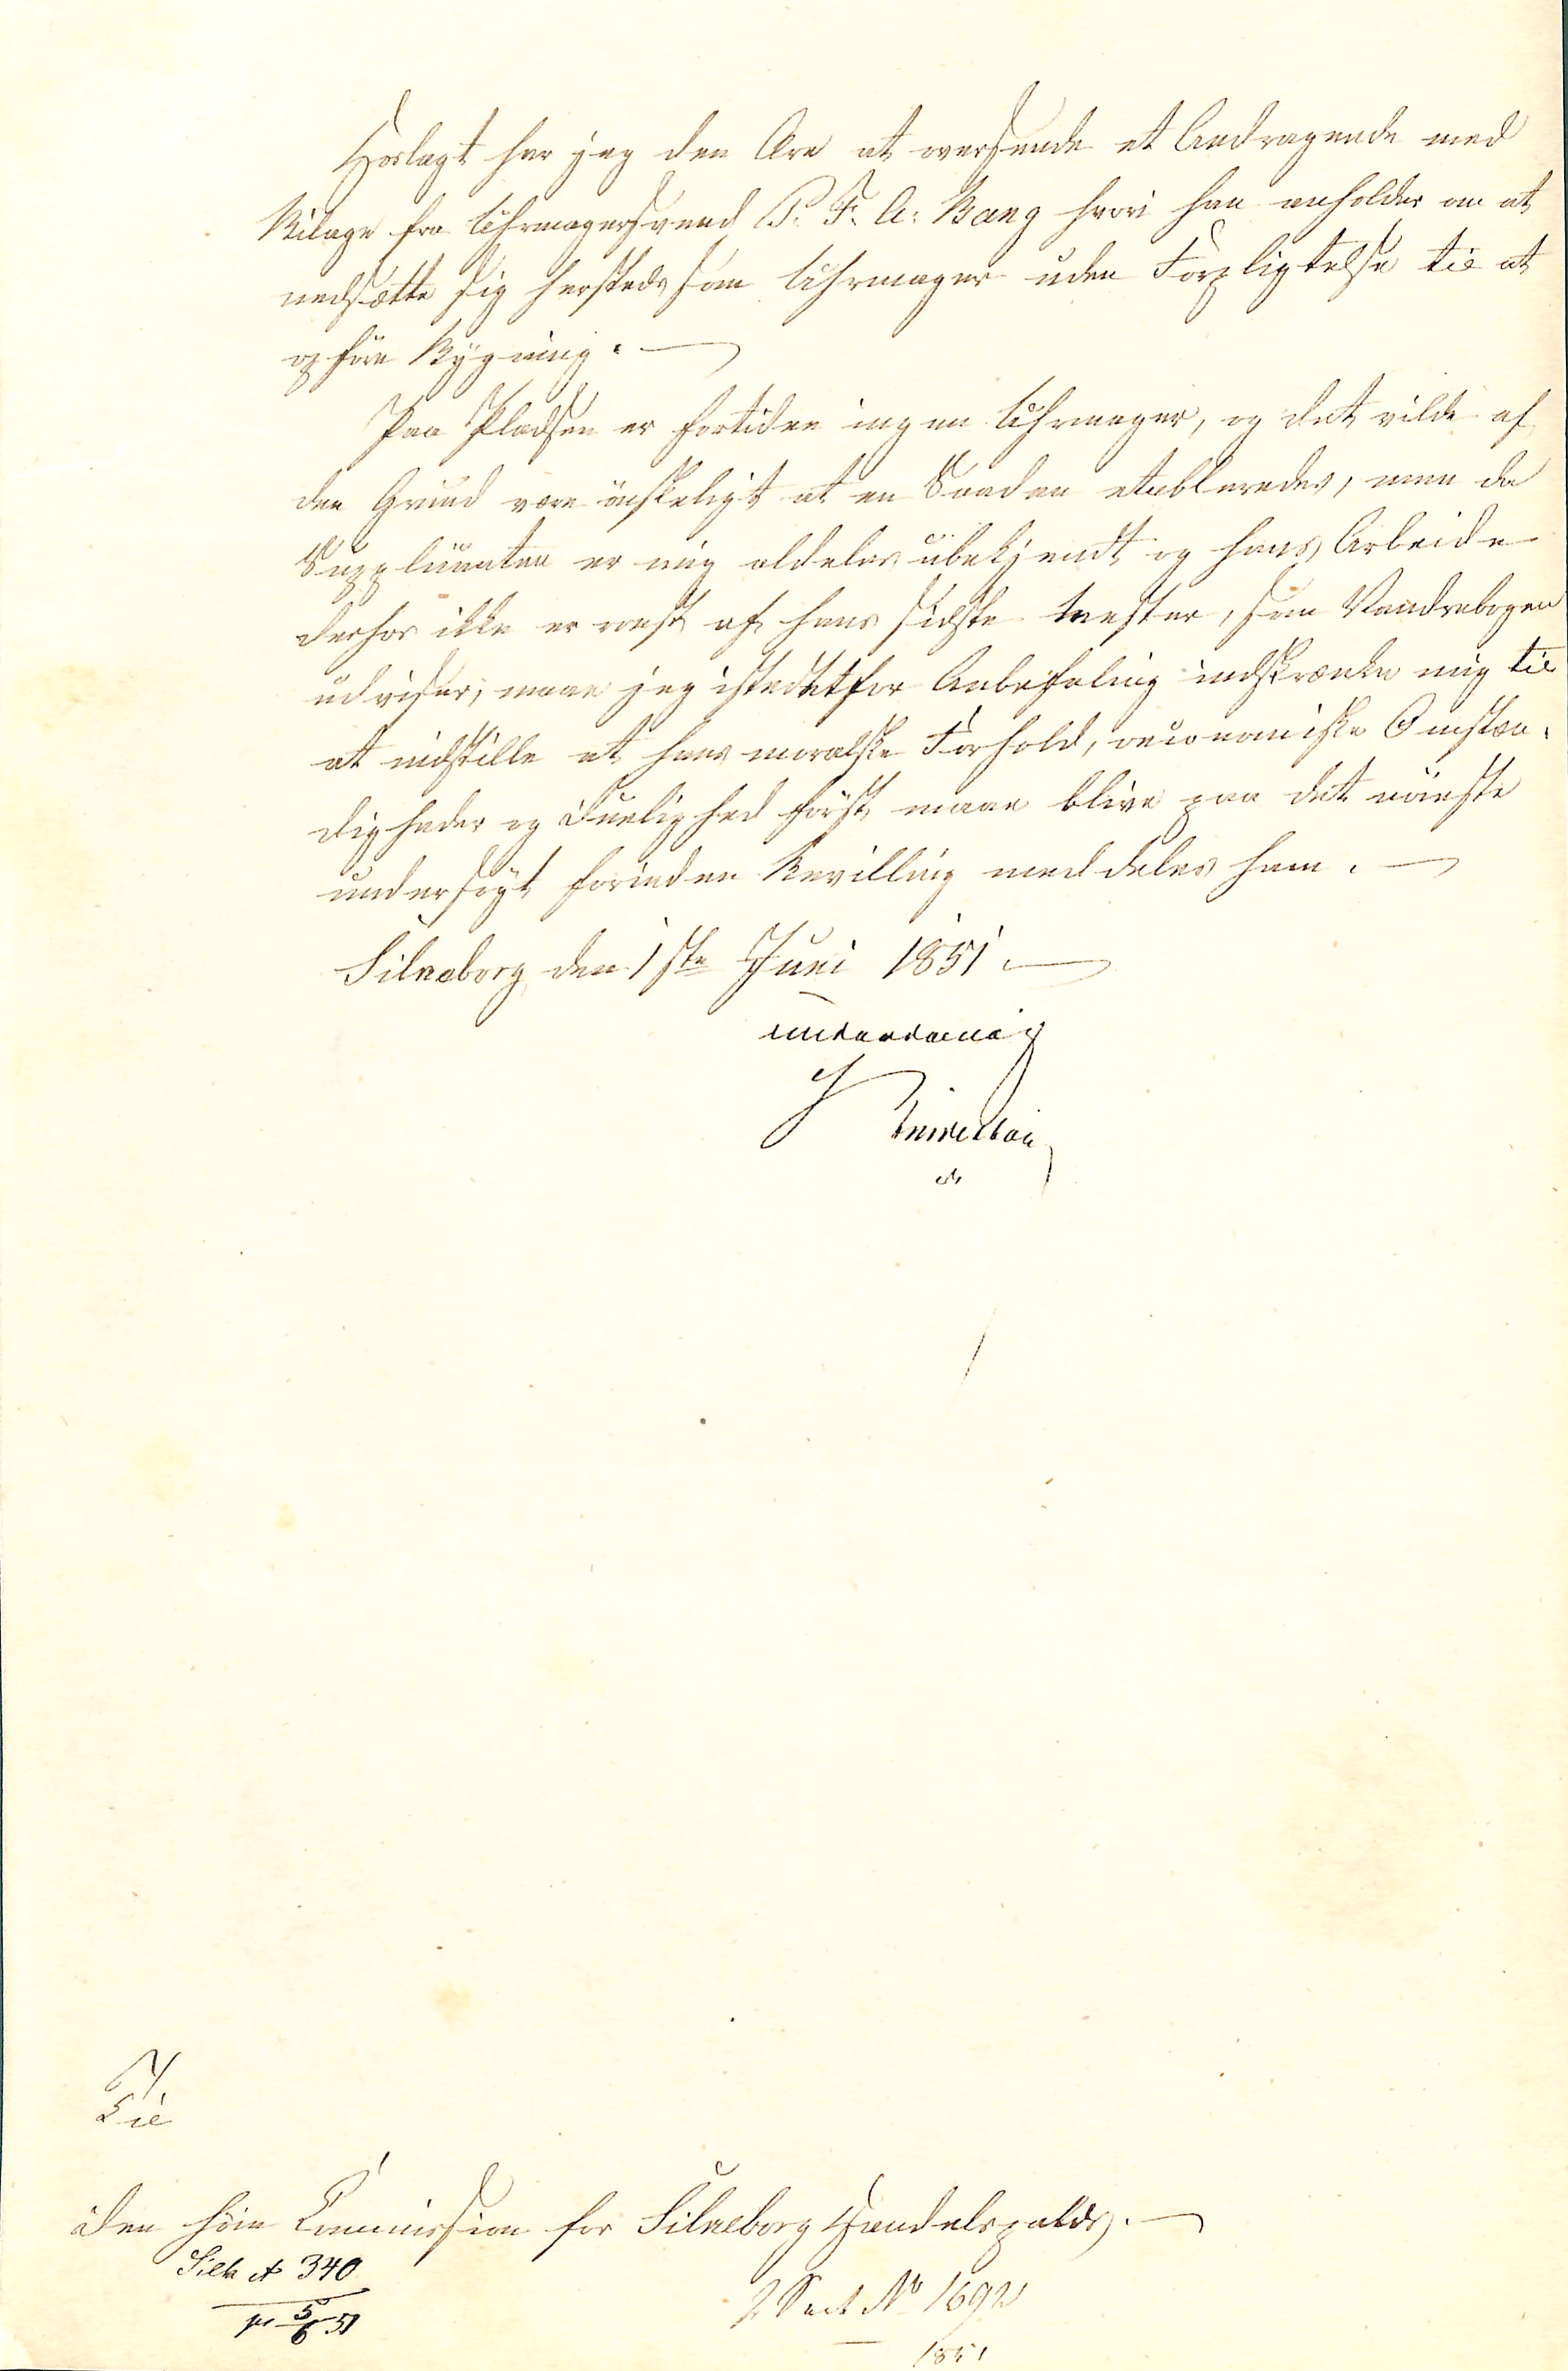 Hoslagt har jeg den Ære at oversende et Andragende med
Bilage fra Uhrmagersvend P. F. A. Bang hvori han anholder om at
nedsætte sig hersteds som Uhrmager uden Forpligtelse til at
opføre Bygning.
Paa Pladsen er fortiden ingen Uhrmager, og det vilde af
den Grund være ønskeligt at en Saadan etableredes, men da
Supplicanten er mig aldeles ubekjendt og hans Arbeide
derhos ikke er roest af hans sidste Mester, som Vandrebogen
udviser, maae jeg istedetfor Anbefaling indskrænke mig til
at indstille at hans moralske Forhold, oeconomiske Omstæn-
digheder og Duelighed først maae blive paa det nøieste
undersøgt forinden Bevilling meddeles ham.
Silkeborg den 1ste Juni 1851.
underdanig
Til
den høie Commission for Silkeborg Handelsplads.
Silk A 340
pr 5/6 51
2 Sect No 1692
1851